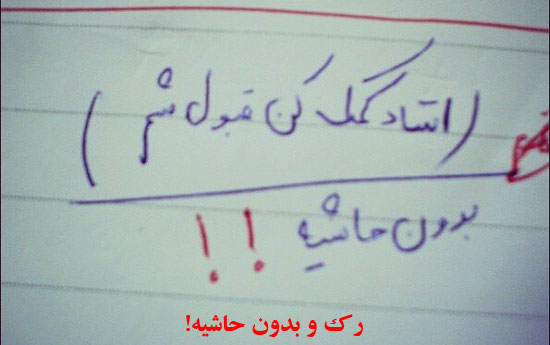 (استاد کمک کن قبول شم)
بدون حاشیه !!
رک و بدون حاشیه!